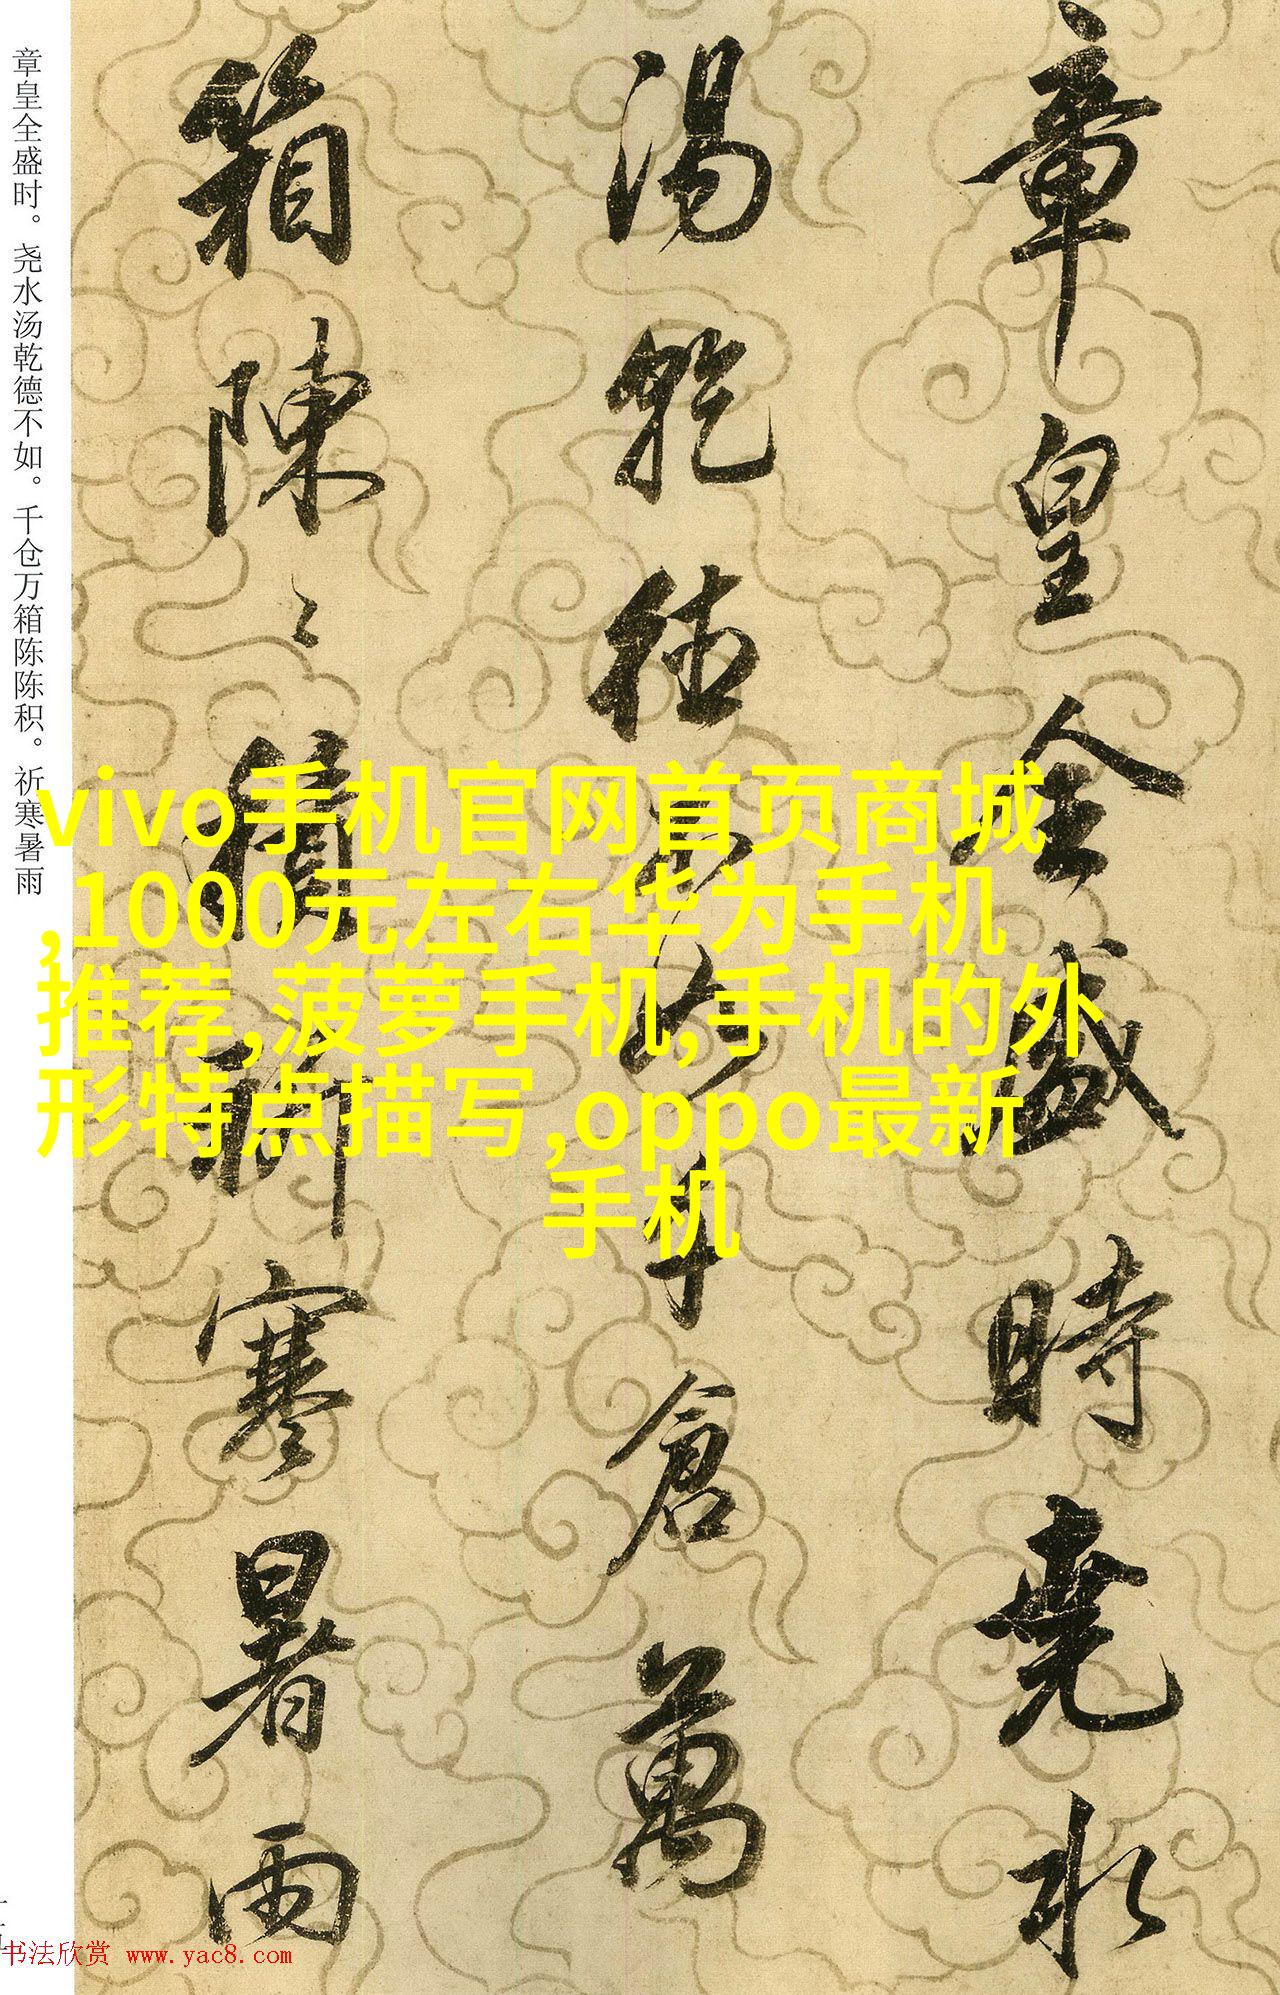 章皇全盛時堯水
湯乾德不如千倉萬
箱陳〻積祈寒暑雨
章皇全盛时。尧水汤乾德不如。千仓万箱陈陈积。祈寒暑雨
vivo手机官网首页商城
,1000元左右华为手机
推荐,菠萝手机,手机的外
形特点描写,oppo最新
手机
书法欣赏 www.yac8.com